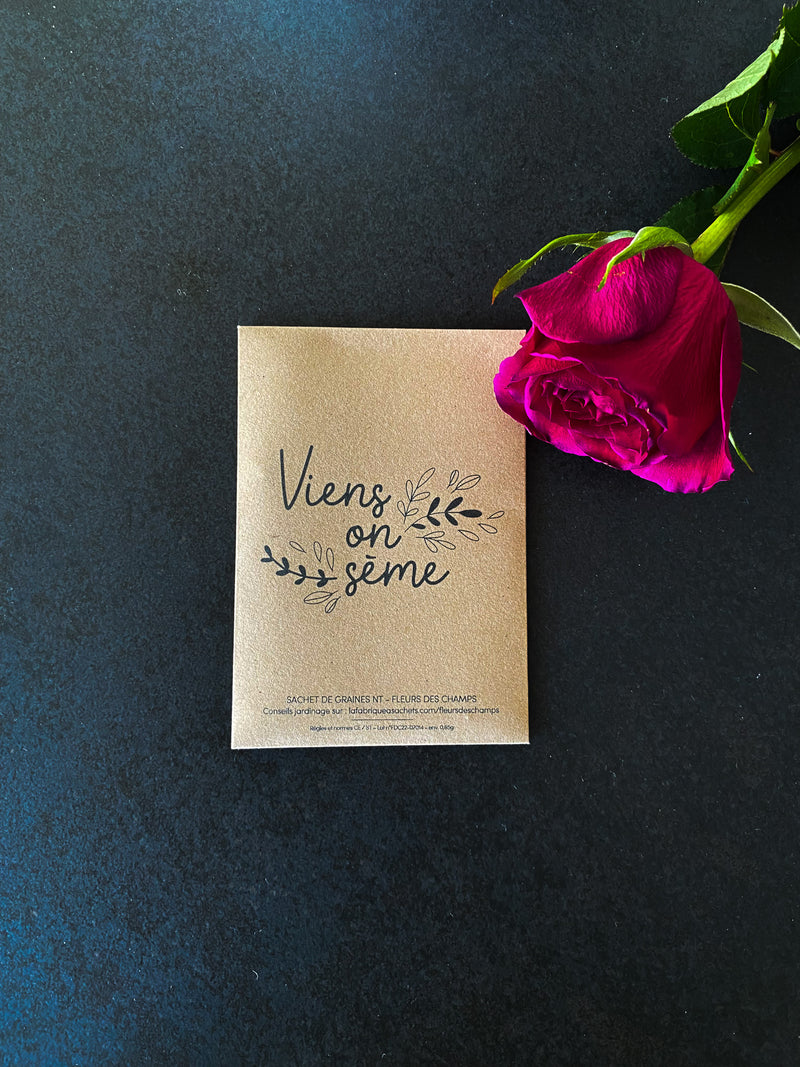 Viens
on
sème
SACHET DE GRAINES NT – FLEURS DES CHAMPS
Conseils jardinage sur : lafabriqueasachets.com/fleursdeschamps
Règles et normes CE / ST – Lot n°FDC22-02014 – env. 0,65g